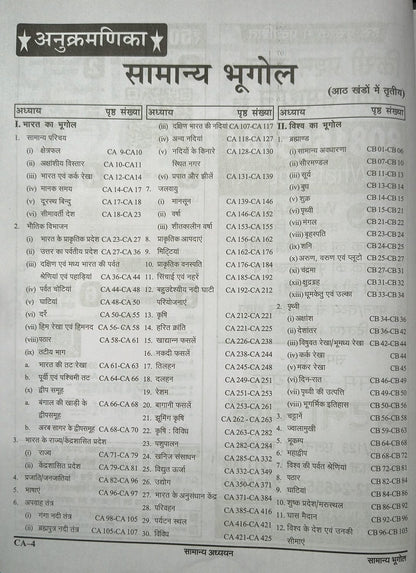 ★ अनुक्रमणिका ★
सामान्य भूगोल
(आठ खंडों में तृतीय)
अध्याय पृष्ठ संख्या
I. भारत का भूगोल
1. सामान्य परिचय
(i) क्षेत्रफल CA 9-CA10
(ii) अक्षांशीय विस्तार CA 10-CA11
(iii) भारत एवं कर्क रेखा CA 12-CA14
(iv) मानक समय CA 14-CA 17
(v) दूरस्थ बिन्दु CA 17-CA 18
(vi) सीमावर्ती देश CA 18-CA 23
2. भौतिक विभाजन
(i) भारत के प्राकृतिक प्रदेश CA 23-CA 27
(ii) उत्तर का पर्वतीय प्रदेश CA 27-CA 36
(iii) दक्षिण एवं मध्य भारत की पर्वत
श्रेणियां एवं पहाड़ियां CA 36-CA 44
(iv) पर्वत चोटियां CA 44-CA 48
(v) घाटियां CA 48-CA 50
(vi) दर्रे CA 50-CA 55
(vii) हिम रेखा एवं हिमनद CA 56-CA 58
(viii) पठार CA 58-CA 61
(ix) तटीय भाग
a. भारत की तट रेखा CA 61-CA 63
b. पूर्वी एवं पश्चिमी तट CA 64-CA 66
(x) द्वीप समूह
a. बंगाल की खाड़ी के CA 66-CA 68
द्वीपसमूह
b. अरब सागर के द्वीपसमूह CA 68-CA 70
3. भारत के राज्य/केंद्रशासित प्रदेश
(i) राज्य CA 71-CA 79
(ii) केंद्रशासित प्रदेश CA 79-CA 81
4. प्रजाति/जनजातियां CA 82-CA 96
5. भाषाएं CA 96-CA 97
6. अपवाह तंत्र
(i) गंगा नदी तंत्र CA 98-CA 105
(ii) ब्रह्मपुत्र नदी तंत्र CA 105-CA 107
पृष्ठ संख्या
(iii) दक्षिण भारत की नदियां CA 107-CA 117
(iv) अन्य नदियां CA 118-CA 127
(v) नदियों के किनारे CA 128-CA 130
स्थित नगर
(vi) प्रपात और झीलें CA 131-CA 139
7. जलवायु
(i) मानसून CA 139-CA 146
(ii) वर्षा CA 146-CA 152
(iii) शीतकालीन वर्षा CA 153-CA 155
8. प्राकृतिक आपदाएं CA 156-CA 162
9. मिट्टियां CA 162-CA 176
10. प्राकृतिक वनस्पति CA 176-CA 184
11. सिंचाई एवं नहरें CA 185-CA 192
12. बहुउद्देशीय नदी घाटी CA 192-CA 212
परियोजनाएं
13. कृषि CA 212-CA 221
14. हरित क्रांति CA 221-CA 225
15. खाद्यान्न फसलें CA 226-CA 238
16. नकदी फसलें CA 238-CA 244
17. तिलहन CA 245-CA 248
18. दलहन CA 249-CA 251
19. रेशम CA 251
20. बागानी फसलें CA 251-CA 253
21. झूमिंग कृषि CA 253-CA 261
22. कृषि : विविध CA 262-CA 263
23. पशुपालन CA 263-CA 282
24. खनिज संसाधन CA 282-CA 284
25. विद्युत ऊर्जा CA 285-CA 332
26. उद्योग CA 332-CA 349
27. भारत के अनुसंधान केंद्र CA 350-CA 371
28. परिवहन CA 371-CA 384
29. पर्यटन स्थल CA 385-CA 416
30. विविध CA 416-CA 421
CA 421-CA 425
अध्याय पृष्ठ संख्या
II. विश्व का भूगोल
1. ब्रह्माण्ड
(i) सामान्य अवधारणा CB 01-CB 06
(ii) सौरमण्डल CB 06-CB 10
(iii) सूर्य CB 11-CB 13
(iv) बुध CB 13-CB 14
(v) शुक्र CB 14-CB 15
(vi) पृथ्वी CB 15-CB 21
(vii) मंगल CB 21-CB 22
(viii) बृहस्पति CB 22-CB 23
(ix) शनि CB 24-CB 25
(x) अरुण, वरुण एवं प्लूटो CB 25-CB 27
(xi) चंद्रमा CB 27-CB 31
(xii) क्षुद्रग्रह CB 31-CB 32
(xiii) धूमकेतु एवं उल्का CB 33-CB 34
2. पृथ्वी
(i) अक्षांश CB 34-CB 36
(ii) देशांतर CB 36-CB 42
(iii) विषुवत रेखा/भूमध्य रेखा CB 42-CB 44
(iv) कर्क रेखा CB 44
(v) मकर रेखा CB 45
(vi) दिन-रात CB 46-CB 49
(vii) पृथ्वी की उत्पत्ति CB 49-CB 50
(viii) भूगर्भिक इतिहास CB 50-CB 56
3. चट्टानें CB 56-CB 58
4. ज्वालामुखी CB 59-CB 63
5. भूकम्प CB 64-CB 68
6. महाद्वीप CB 68-CB 72
7. विश्व की पर्वत श्रेणियां CB 72-CB 81
8. पठार CB 82-CB 84
9. घाटियां CB 84-CB 86
10. शुष्क प्रदेश/मरुस्थल CB 86-CB 92
11. घास मैदान CB 92-CB 96
12. विश्व के देश एवं उनकी CB 96-CB 103
सीमाएं
CA–4
सामान्य अध्ययन
सामान्य भूगोल